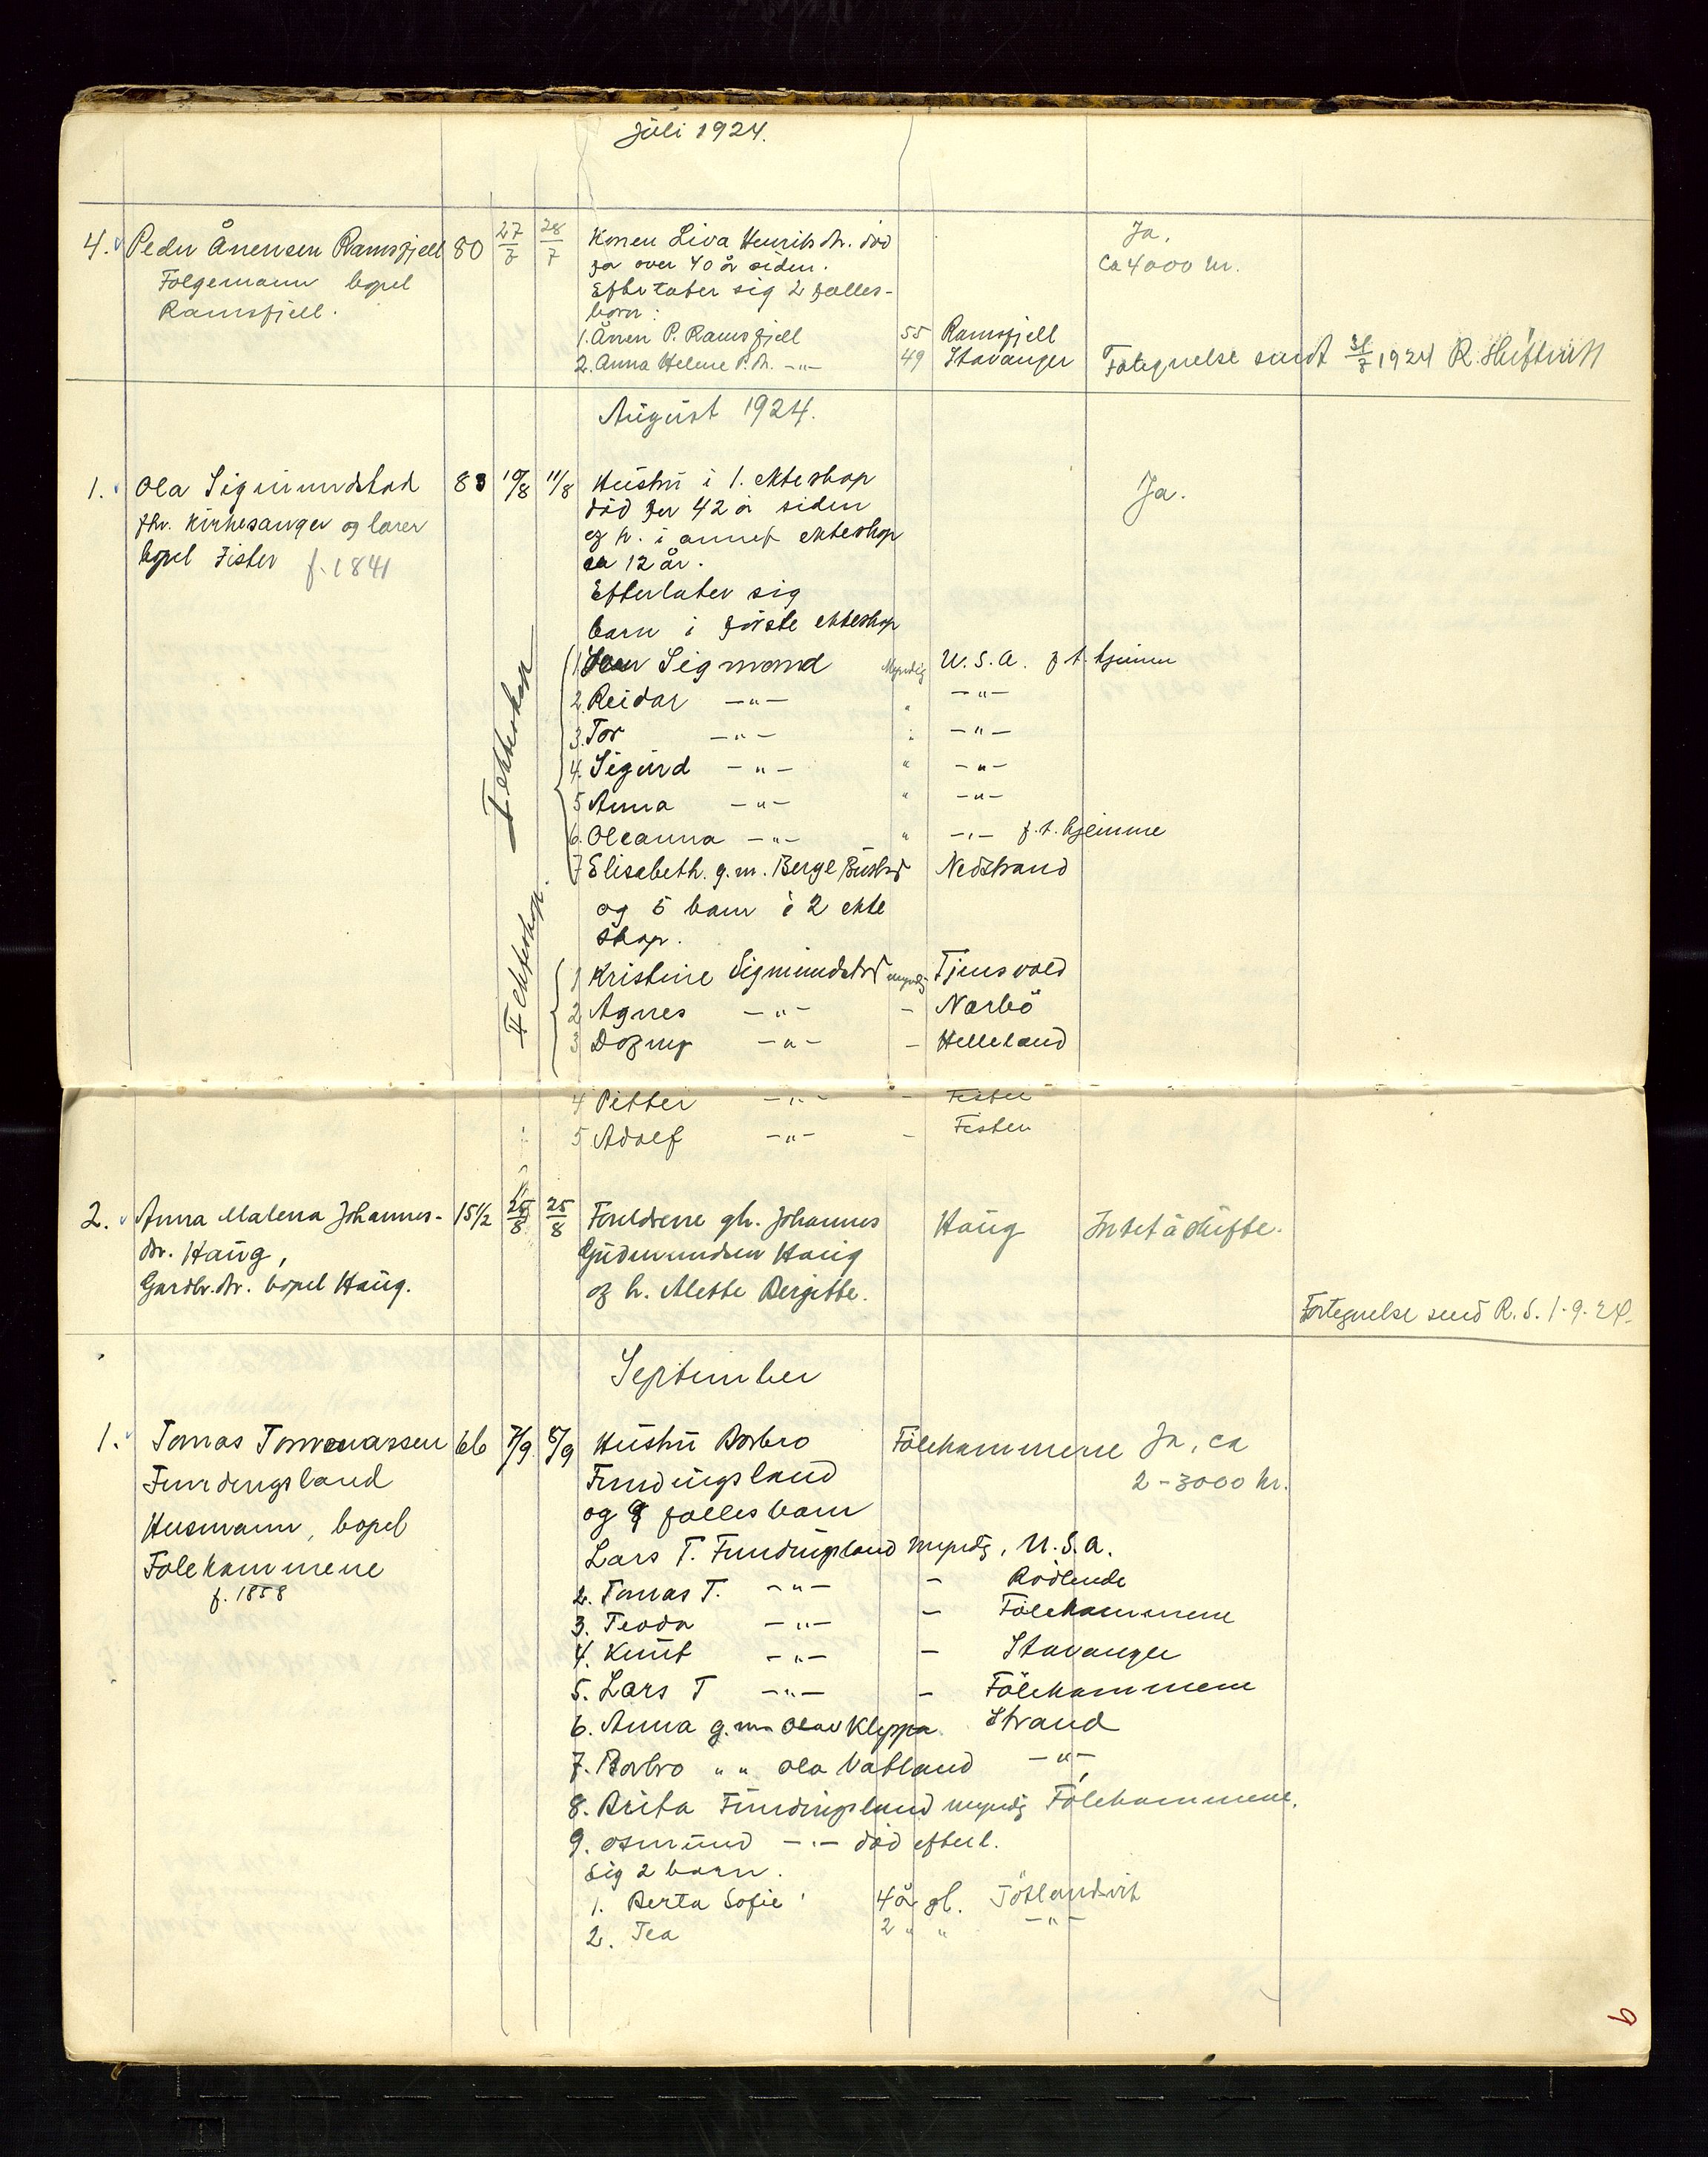 Juli 1924.
4. Peder Ånensen Ramsfjell 80 27/7 28/7 Konen Liva Henriksdr. død Ja.
Folgemann bopel for over 40 år siden. ca 4000 kr.
Ramsfjell. Efterlater sig 2 fælles-
born:
1. Ånen P. Ramsfjell 55 Ramsfjell
2. Anna Helene P.dr. -"- 49 Stavanger Fortegnelse sendt 31/7 1924 R. Skifterett
August 1924.
1. Ola Sigmundstad 83 10/8 11/8 Hustru i 1. ekteskap Ja.
fhv. Kirkesanger og lærer død for 42 år siden
bopel Fister f. 1841 og h. i annet ekteskap
ca 12 år.
Efterlater sig
barn i første ekteskap
I ekteskap
1. Sigmond Myndig U.S.A. f.t. hjemme
2. Reidar -"- " -"-
3. Tor -"- " -"-
4. Sigurd -"- " -"-
5 Anna -"- " -"-
6. Oleanna -"- " -"- f.t. hjemme
7 Elisabeth. g.m. Berge Nedstrand
og 5 barn i 2 ekte
skap.
II ekteskap.
1 Kristine Sigmundstad myndig Tjensvold
2 Agnes -"- - Nærbö
3 Dagny -"- - Helleland
4 Petter -"- - Fister
5 Adolf -"- - Fister
2. Anna Malena Johannes- 15 1/2 25/8 25/8 Foreldrene gb. Johannes Haug Intet å skifte.
dr. Haug, Gudmundsen Haug
Gardbr.dr. bopel Haug. og h. Mette Bergitte.
Fortegnelse send R.S. 1-9-24.
September
1. Tomas Tommassen 66 7/9 8/9 Hustru Borbro Fölekammene Ja, ca
Fundingsland Fundingsland 2-3000 kr.
Husmann, bopel og 9 fælles barn
Folekammene Lars T. Fundingsland myndig, U.S.A.
f. 1858
2. Tomas T. -"- - Rödlende
3. Teoda -"- - Fölekammene
4. Knut -"- - Stavanger
5. Lars T -"- - Fölekammene
6. Anna g.m. Olav Kleppa Strand
7. Borbro " " Ola Vatland -"-
8. Brita Fundingsland myndig Fölekammene.
9. Osmund -"- död efterl.
sig 2 barn.
1. Berta Sofie 4 år gl. Jötlandsvik
2. Tea 2 " " -"-
6